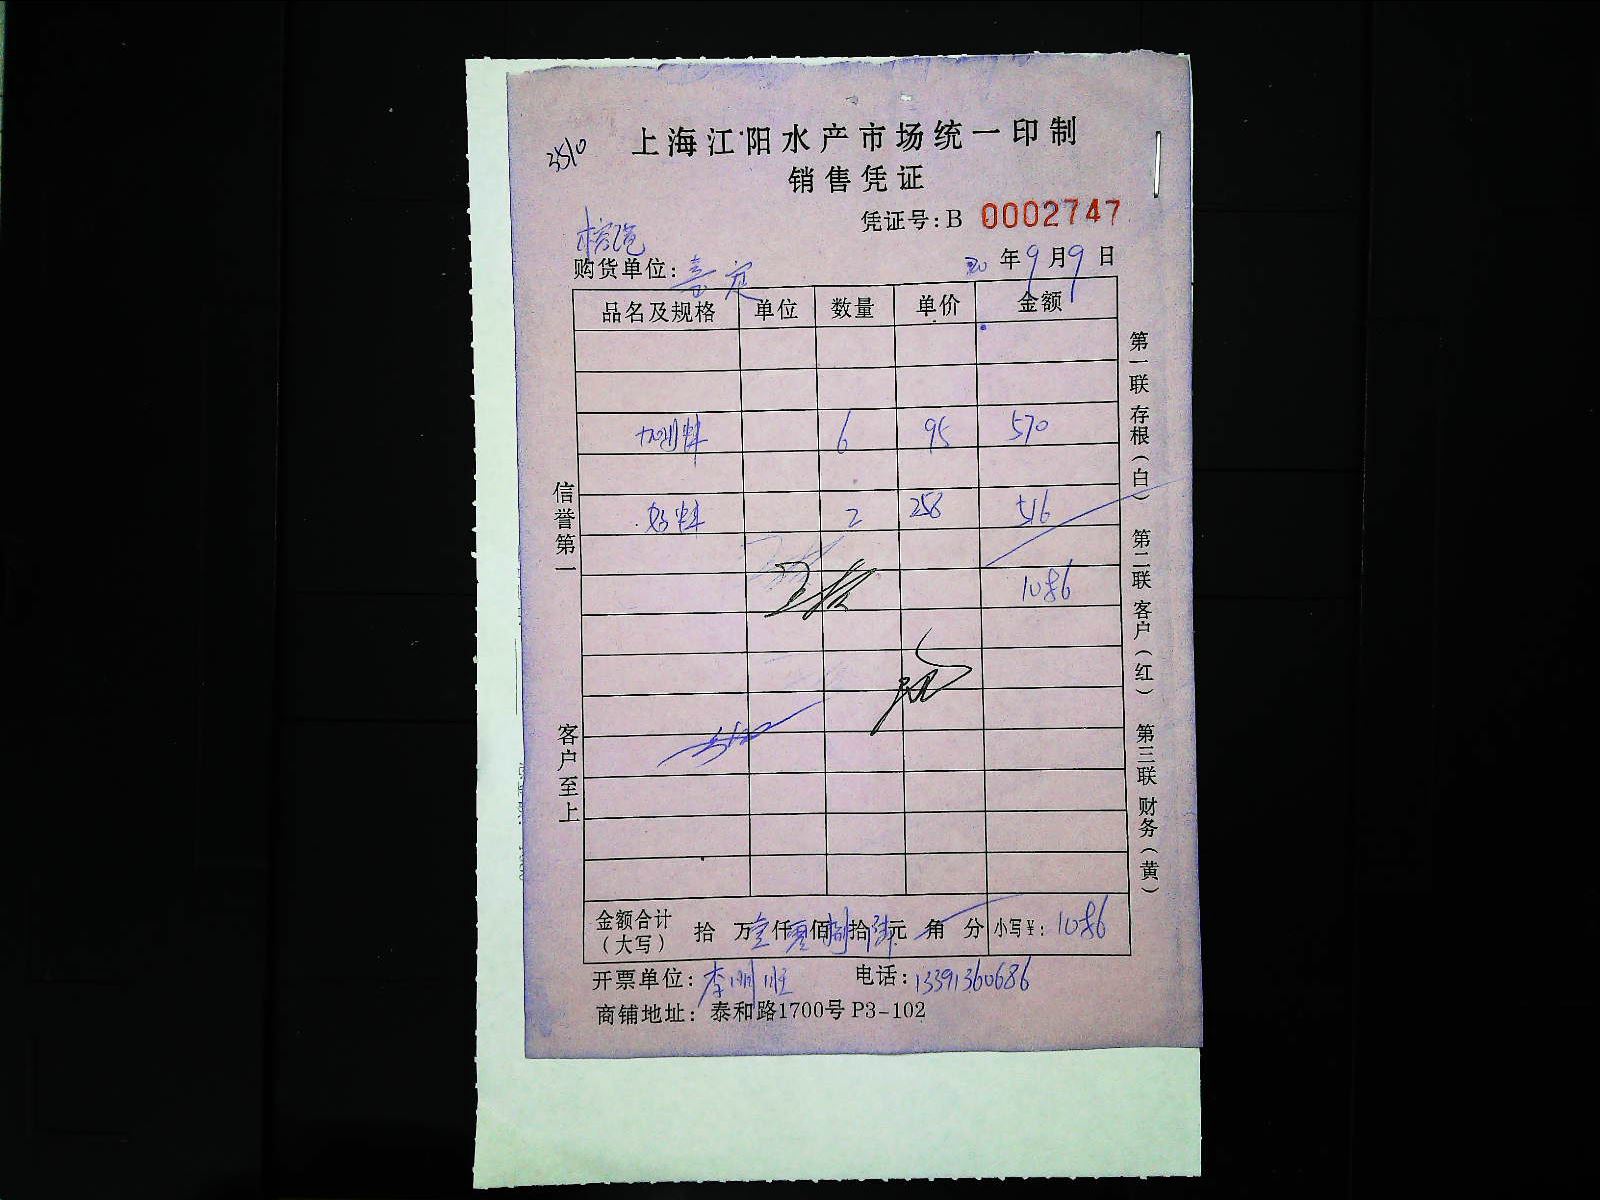 3510
上海江阳水产市场统一印制
销售凭证
凭证号:B 0002747
购货单位:嘉定
20年9月9日
品名及规格 单位 数量 单价 金额
6 95 570
好料 2 258 516
1086
信誉第一
客户至上
第一联 存根(白) 第二联 客户(红) 第三联 财务(黄)
金额合计(大写) 拾 万壹仟零佰捌拾陆元 角 分 小写¥: 1086
开票单位:李 电话:13391360686
商铺地址:泰和路1700号P3-102